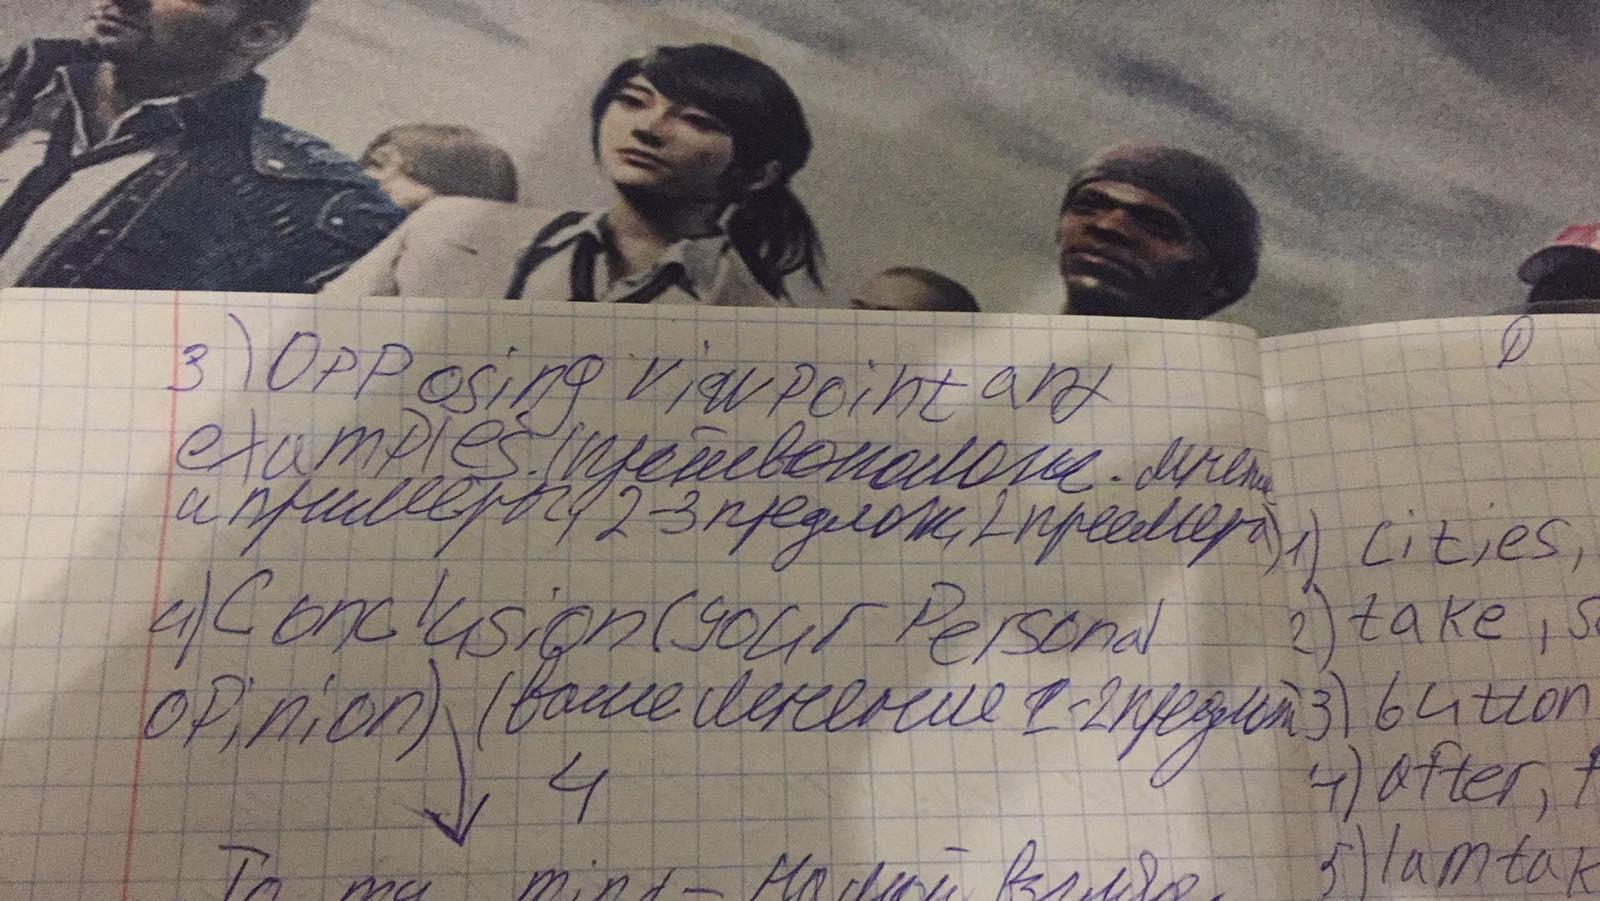 3) Opposing viewpoint and
examples. (противополож. мнение
и примеры, 2-3 предлож, 2 примера)
4) Conclusion (your Personal
opinion) (ваше мнение 1-2 предлож)
4
To my mind - На мой взгляд,
D
1) cities,
2) take,
3) button
4) after,
5) I am